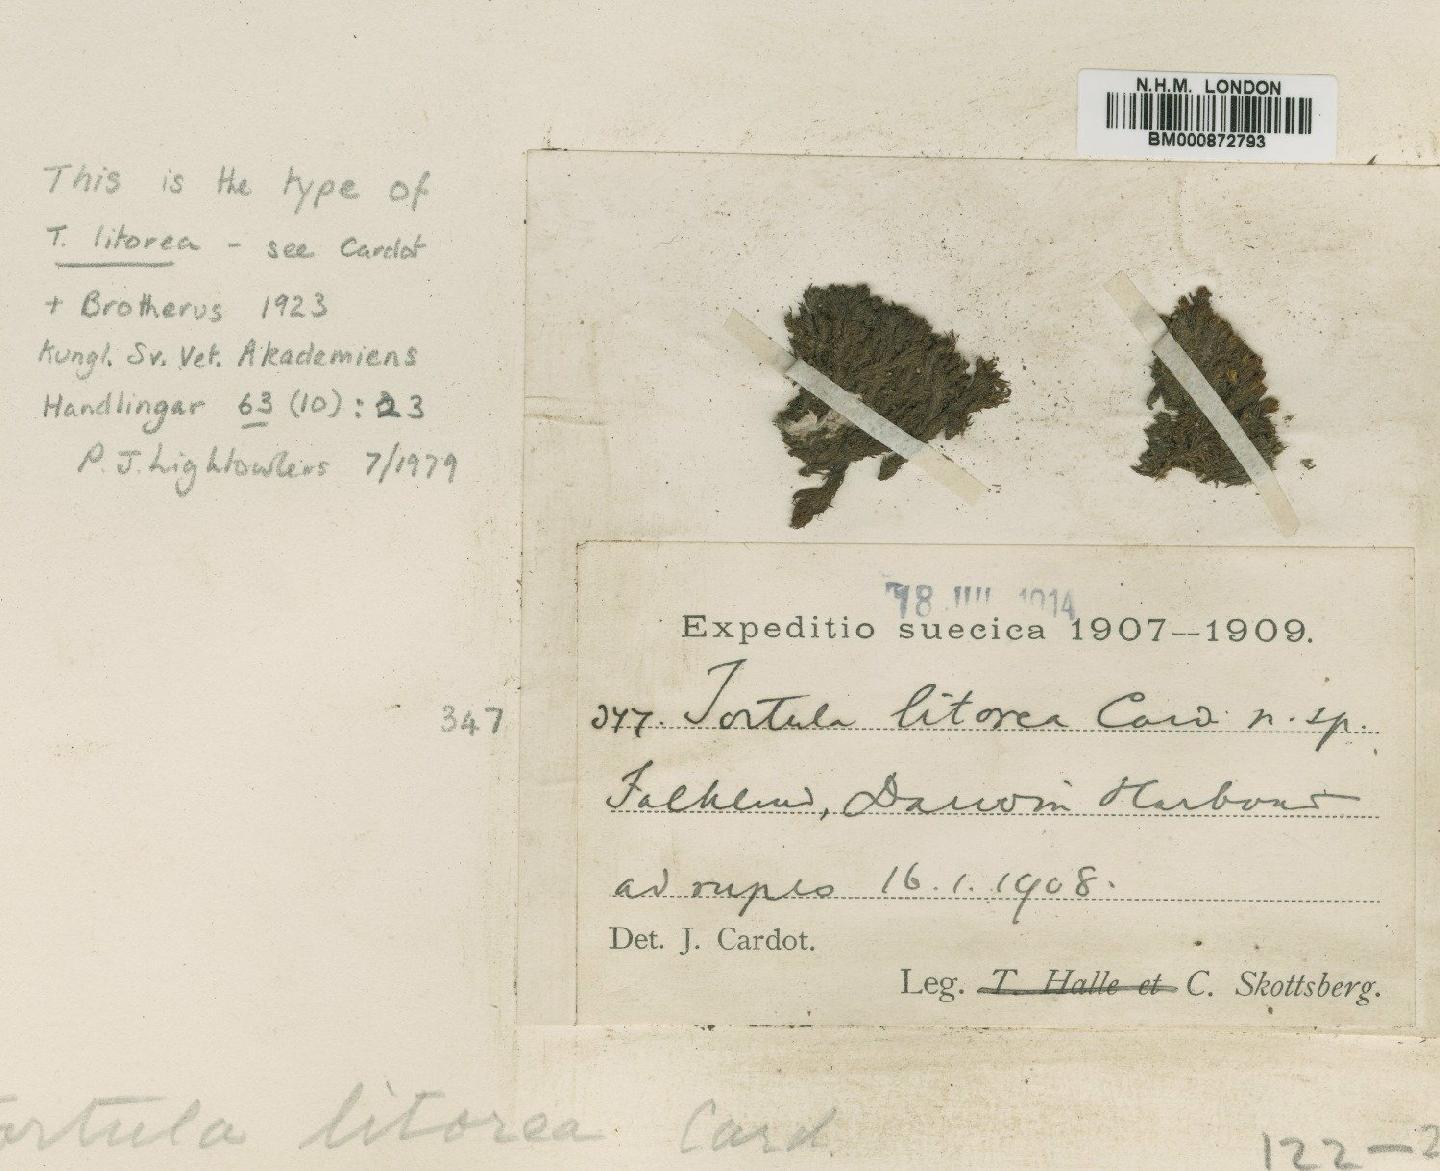 N.H.M. LONDON
BM000872793
This is the type of
T. litorea - see Cardot
+ Brotherus 1923
Kungl. Sv. Vet. Akademiens
Handlingar 63 (10) : 23
P. J. Lightowlers 7/1979
18 JUL 1914
Expeditio suecica 1907—1909.
347
377. Tortula litorea Card. n. sp.
Falkland, Darwin Harbour
ad rupes 16.1.1908.
Det. J. Cardot.
Leg. T. Halle et C. Skottsberg.
Tortula litorea Card.
122-2